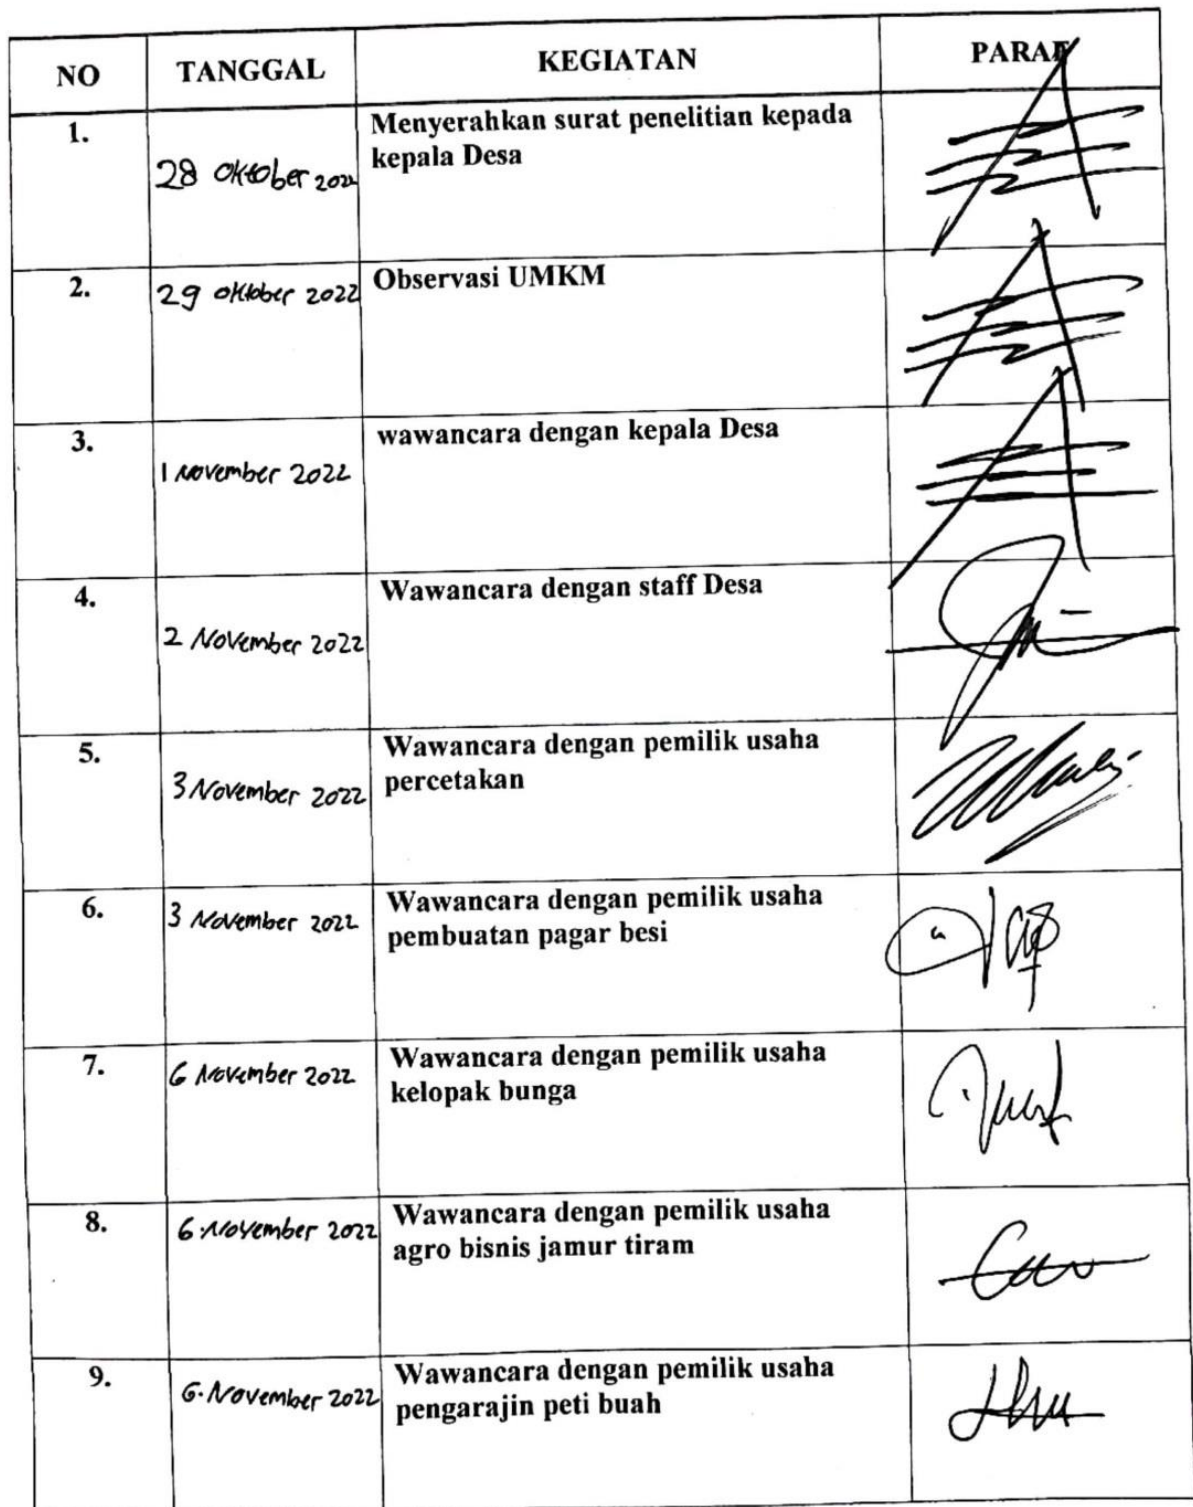 NO TANGGAL KEGIATAN PARAF
1. 28 Oktober 2022 Menyerahkan surat penelitian kepada
kepala Desa
2. 29 Oktober 2022 Observasi UMKM
3. 1 November 2022 wawancara dengan kepala Desa
4. 2 November 2022 Wawancara dengan staff Desa
5. 3 November 2022 Wawancara dengan pemilik usaha
percetakan
6. 3 November 2022 Wawancara dengan pemilik usaha
pembuatan pagar besi
7. 6 November 2022 Wawancara dengan pemilik usaha
kelopak bunga
8. 6 November 2022 Wawancara dengan pemilik usaha
agro bisnis jamur tiram
9. 6 November 2022 Wawancara dengan pemilik usaha
pengarajin peti buah